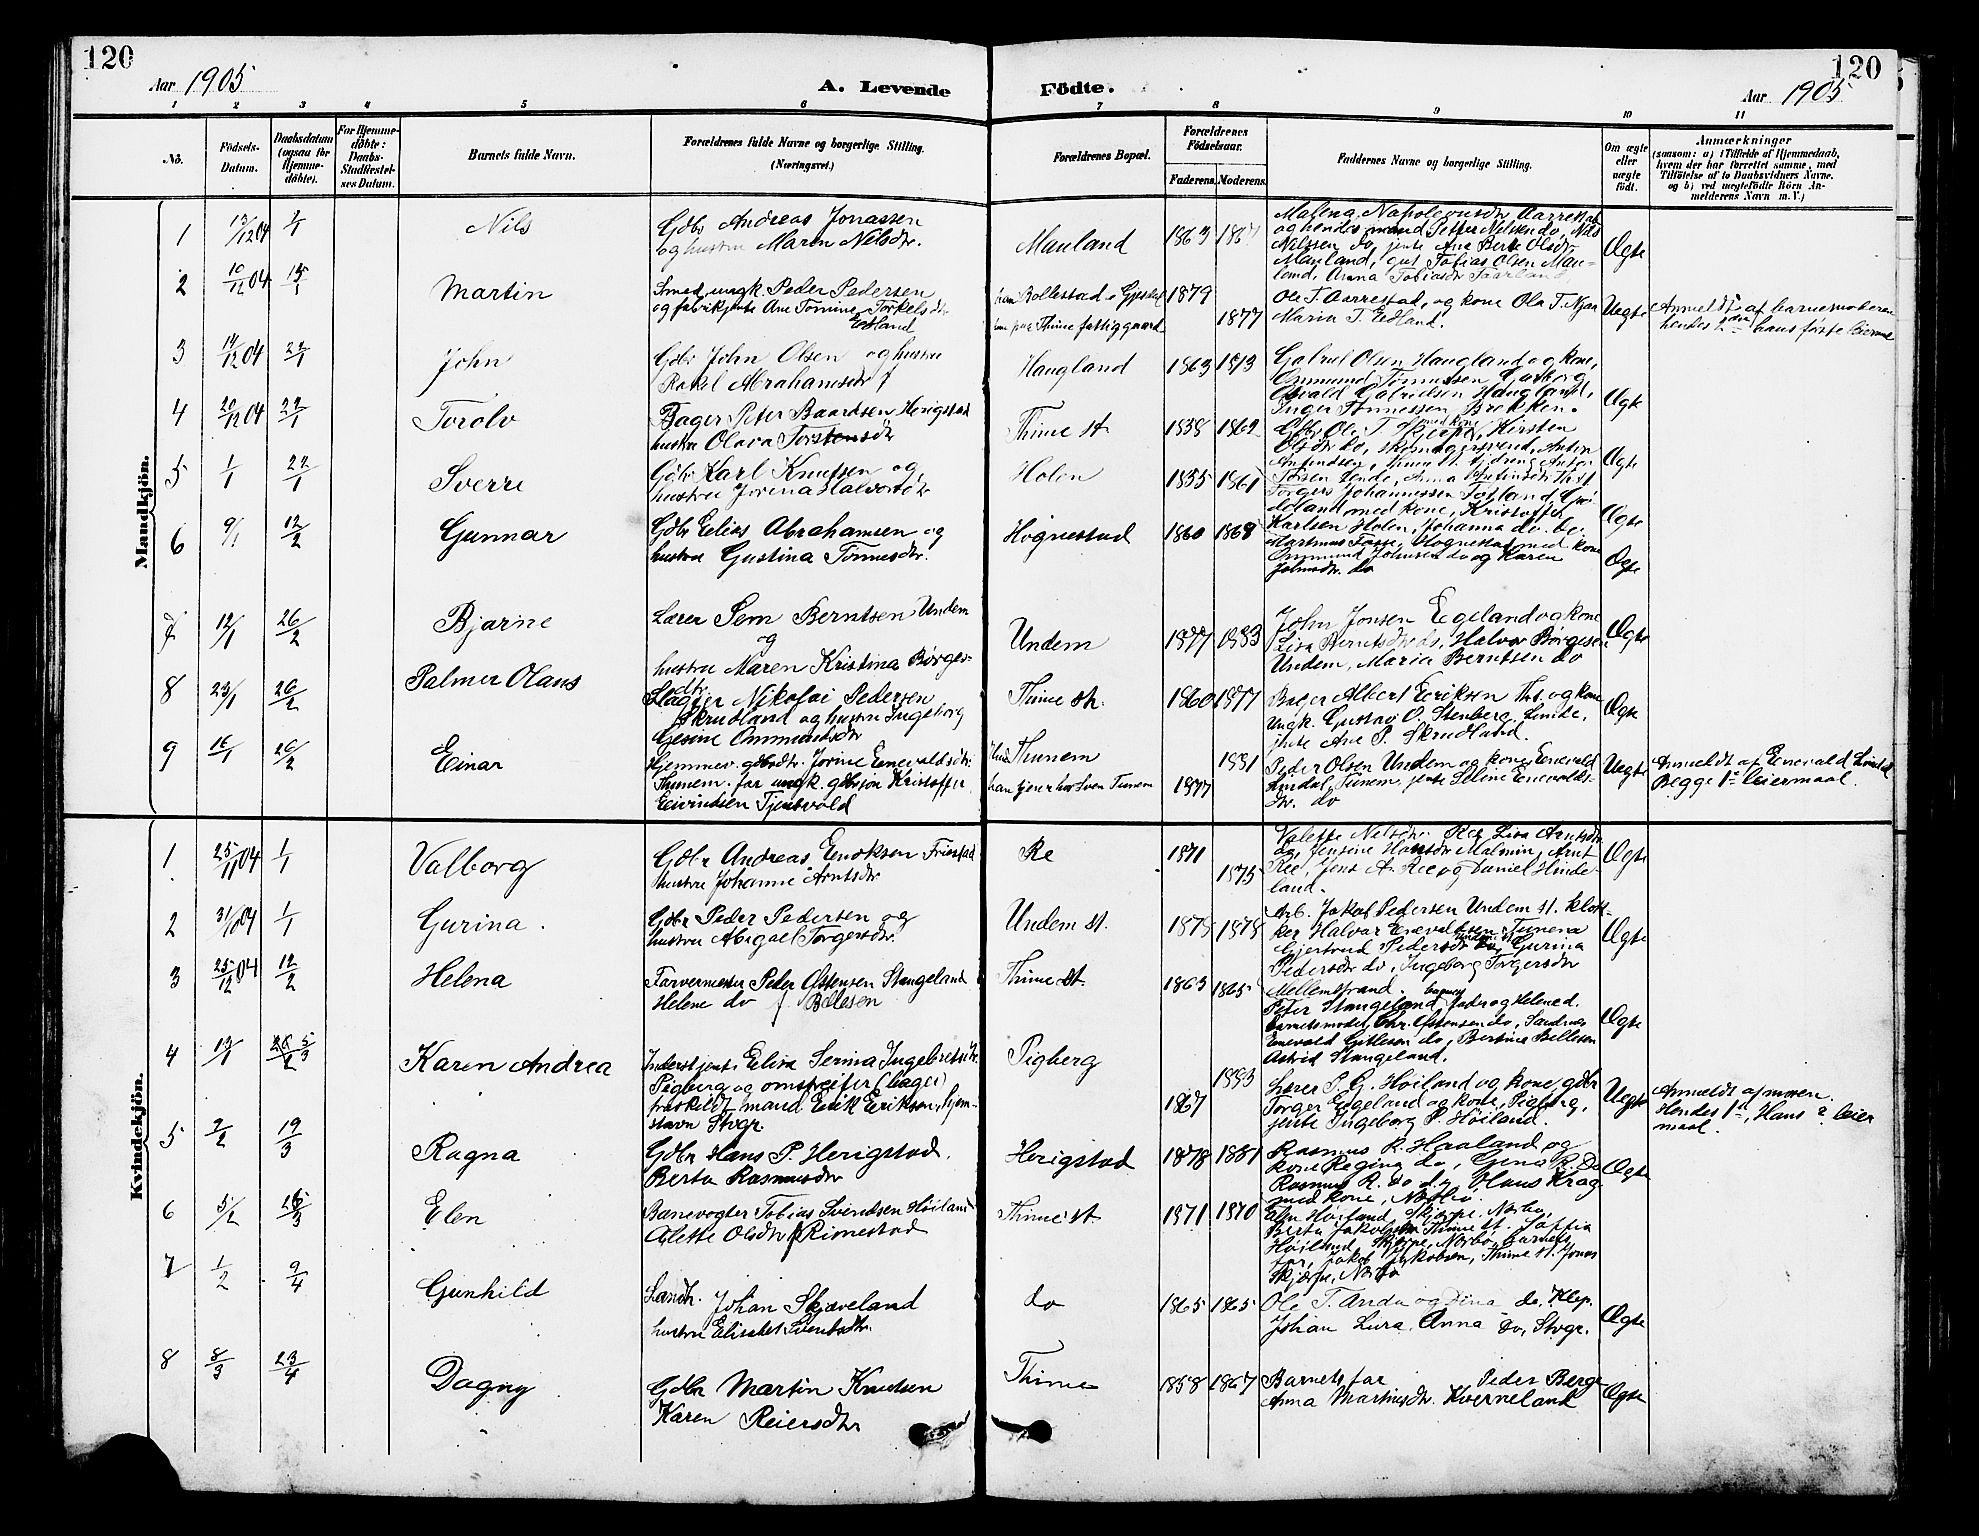 120
Aar 1905
A. Levende
Födte.
120
Aar 1905
1 2 3 4 5 6 7 8 9 10 11
No.
Födsels-
Datum.
Daabsdatum
(ogsaa for
Hjemme-
döbte).
For Hjemme-
döbte:
Daabs-
Stadfæstel-
ses Datum.
Barnets fulde Navn.
Forældrenes fulde Navne og borgerlige Stilling.
(Næringsvei.)
Forældrenes Bopæl.
Forældrenes
Födselsaar.
Faderens. Moderens.
Faddernes Navne og borgerlige Stilling.
Om ægte
eller
uægte
födt.
Anmærkninger
(saasom: a) i Tilfælde af Hjemmedaab,
hvem der har forrettet samme, med
Tilföielse af to Daabsvidners Navne.
og b) ved uægtefödte Börn An-
melderens Navn m. V.)
Mandkjön.
1 13/12 04 1/1 Nils
Gdbr Andreas Jonassen
og hustru Maren Nilsdtr.
Mauland 1863 1867
Malena Napoleonsdtr Aarrestad
og hendes mand Petter Nelsen do, Nils
Nilssen do, jente Ane Berte Olsdtr
Mauland, gut Tobias Olsen Mau-
land, Anna Tobiasdtr Taarland
Ægte
2 10/12 04 15/1 Martin
Smed, ungk. Peder Pedersen
og fabrikjente Ane Tomine Torkelsdtr
Edland
han Rollestad i Gjesdal 1879
hun paa Thime fattiggaard 1877
Ole T. Aarrestad, og kone Ola T. Njaa
Maria T. Edland.
Uegte
Anmeldt af barnemoderen
hendes 2den, hans förste leierm.
3 14/12 04 22/1 John
Gdbr John Olsen og hustru
Rakel Abrahamsdtr
Haugland 1863 1873
Gabriel Olsen Haugland og kone,
Ommund Tönnessen
Osvald Gabrielsen Haugland,
Inger Tönnessen Brekken.
Ægte
4 20/12 04 22/1 Torolv
Bager Peter Baardsen Herigstad
hustru Olava Torstensdtr
Thime st. 1838 1862
Gdbr Ole T. Hjelpe med kone, Kirsten
Olsdtr do, skomagersvend, Anton
Ægte
5 1/1 22/1 Sverre
Gdbr Karl Knutsen og
hustru Jorina Halvorsdtr
Holen 1855 1861
Torgers Johannessen Tosland
med kone, Kristoffer
Karlsen Holen, Johanna do. do.
Ægte
6 9/1 12/2 Gunnar
Gdbr Elias Abrahamsen og
hustru Gustina Tönnesdtr.
Hognestad 1860 1868
Hognestad med kone
Ommund Johnsen do og Karen
Johnsdtr. do
Ægte
7 12/1 26/2 Bjarne
Lærer Sem Berntsen Undem
og
hustru Maren Kristina Börges-
dtr.
Undem 1877 1883
John Jonsen Egeland og kone
Lisa Berntsdtr do, Halvor Börgesen
Undem, Maria Berntsen do
Ægte
8 23/1 26/2 Palmer Olaus
Slagter Nikolai Pedersen
Skrudland og hustru Ingeborg
Gesine Ommundsdtr
Thime st. 1860 1877
Bager Albert Eeriksen Th.st. og kone
Ungk. Gustav O. Stenberg, Lende,
jente Ane P. Skrudland.
Ægte
9 16/1 26/2 Einar
Hjemmev. gdbrdtr. Jorine Enevaldsdtr.
Thunem. far ungk. gdbrsön Kristoffer
Eivindsen Tjentvold
Thunem 1881
han tjener hos Sven Tunem 1877
Peder Olsen Undem og kone, Enevald
Aredal, Tunem, jente Seline Enevalds-
dtr. do
Uegte
Anmeldt af Enevald
Begge 1ste leiermaal.
Kvindekjön.
1 25/11 04 1/1 Valborg
Gdbr Andreas Eeriksen Friestad
hustru Johanne Arntsdtr
Re 1871 1875
Valette Nelsdtr. Ree, Lisa Arntsdtr
do, Jensine Hansdtr Malmin, Arnt
Ree, Jens A. Ree og Daniel Hinde-
land.
Ægte
2 31/10 04 1/1 Gurina.
Gdbr Peder Pedersen og
hustru Abigael Torgersdtr.
Undem st. 1875 1878
Arb. Jakob Pedersen Undem st. klok-
ker Halvar Enevaldsen Tunem
Gjertrud Pedersdtr do, Gurina
Pedersdtr do, Ingeborg Torgersdtr
Mellemstrand.
Ægte
3 25/12 04 12/2 Helena
Farvermester Peder Ostensen Stangeland
Helene do f. Bellesen
Thime st. 1863 1865
Peter Stangeland, fader og Helene d.
Barnets moder, Chr. Ostensen do, Sandnes
Enevald Gitlesen do, Bertine Bellesen
Astrid Stangeland.
Ægte
4 13/1 5/3 Karen Andrea
Inderstjente Elisa Serina Ingebretsdtr.
Pigberg og omstreifer (bager)
fraskildt mand Erik Eriksen, hjem-
stavn Stvgr.
Pigberg 1883
1867
Lærer P. G. Höiland og kone, gdbr
Torger Eggeland og kone, Pigberg,
jente Ingeborg P. Höiland.
Uegte
Anmeldt af moren.
Hendes 1ste, Hans ? leier
maal.
5 2/2 19/3 Ragna
Gdbr Hans P. Herigstad.
Berta Rasmusdtr
Herigstad 1878 1881
Rasmus R. Haaland og
kone Regina do, Gena R. Do
Rasmus R. do og Hans Krag
med kone, Norbö.
Ægte
6 5/2 26/3 Elen
Banevogter Tobias Svendsen Höiland
Alette Olsdtr f. Rimestad
Thime st. 1871 1870
Elen Höiland, Skjærpe, Norbö,
Berta Jakobsen Thime st. Soffia
Höiland, Skjærpe, Norbö, barnets
far, Jakob Jakobsen, Thime st. Jonas
Skjærpe, Norbö
7 1/2 9/4 Gunhild
Landh. Johan Skjæveland
hustru Elisabet Svendsdtr.
do 1865 1865
Ole T. Anda og Dina do. Klep.
Johan Lura. Anna do, Stvgr.
Ægte
8 8/3 23/4 Dagny
Gdbr Martin Knudsen
Karen Reiersdtr
Thime 1858 1867
Barnets far Peder Berge
Anna Martinsdtr. Kverneland
Ægte